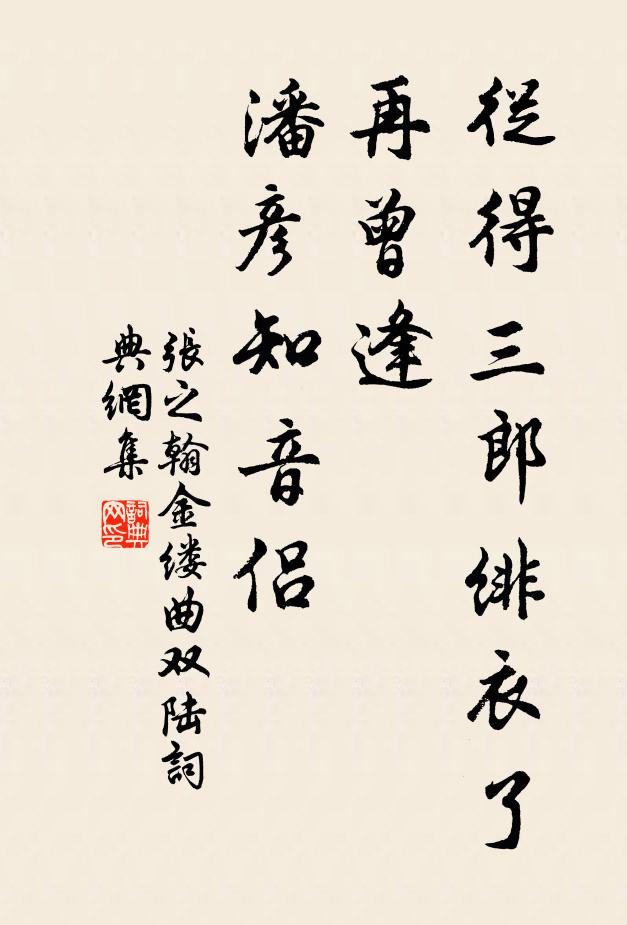 從得三郎緋衣了
再曾逢
潘彦知音侣
張之翰金缕曲双陆詞
典網集
詞典网印